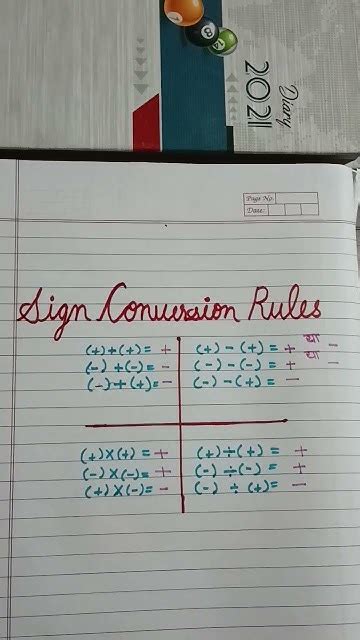 8
Diary
2021
Page No.
Date:
Sign Conversion Rules
(+)+(+)= +
(-) +(-)= -
(-)+(+)= -
(+) - (+) = + या -
(-) - (-) = + या -
(-) - (+) = -
(+)×(+) = +
(-)×(-)= +
(+)×(-)= -
(+)÷(+) = +
(-) ÷(-) = +
(-) ÷ (+)= -